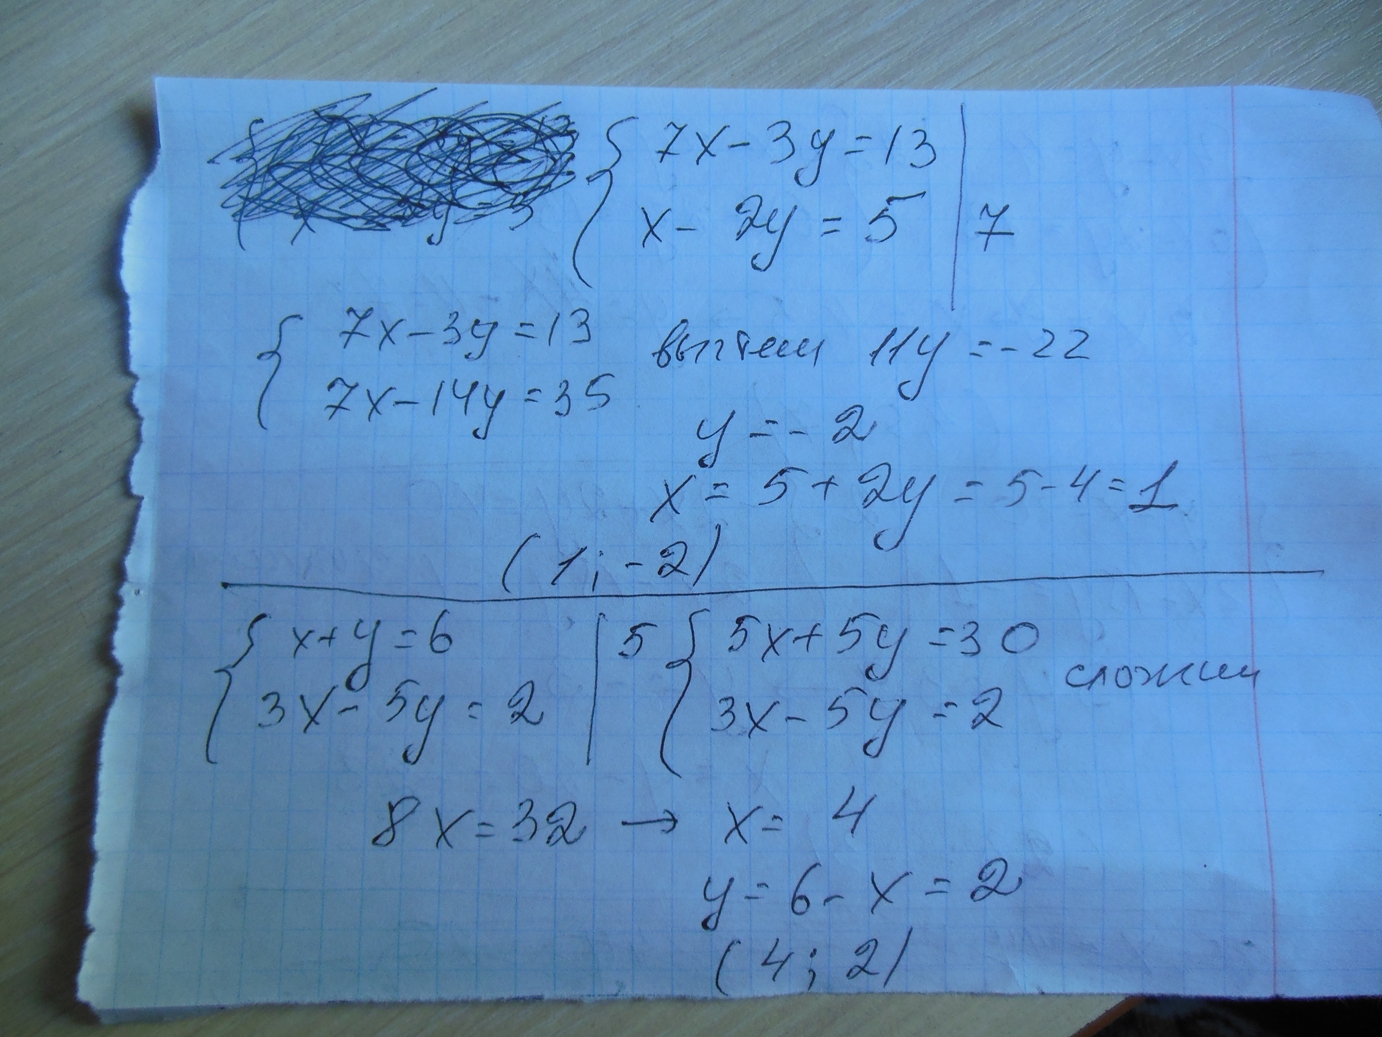 { 7x - 3y = 13
x - 2y = 5 | 7
{ 7x - 3y = 13
7x - 14y = 35
вычтем 11y = -22
y = -2
x = 5 + 2y = 5 - 4 = 1
(1; -2)
{ x + y = 6 | 5
3x - 5y = 2
{ 5x + 5y = 30
3x - 5y = 2
сложим
8x = 32 → x = 4
y = 6 - x = 2
(4; 2)